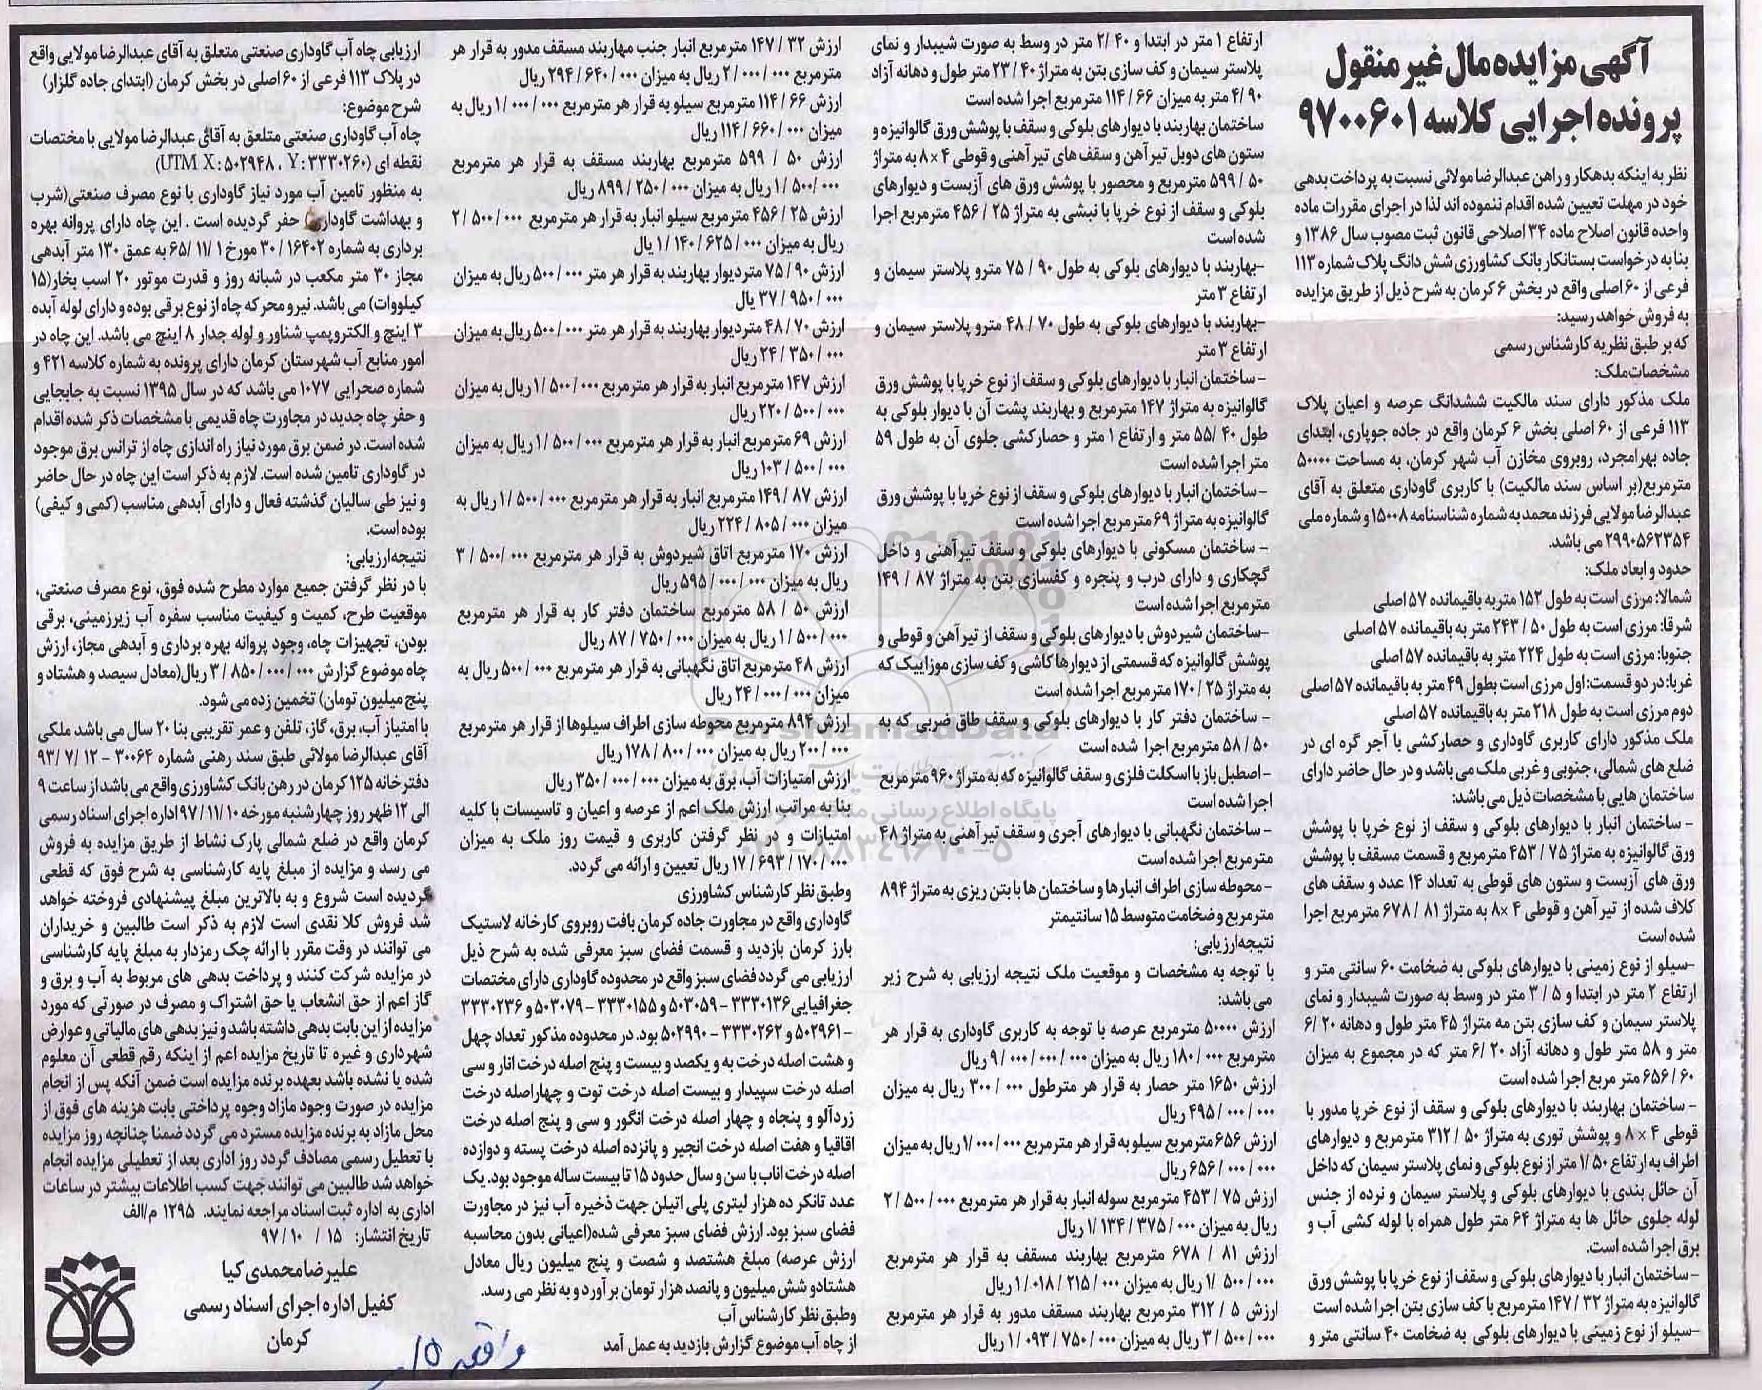 آگهی مزایده مال غیر منقول
پرونده اجرایی کلاسه ۹۷۰۰۶۰۱
نظر به اینکه بدهکار و راهن عبدالرضا مولائی نسبت به پرداخت بدهی
خود در مهلت تعیین شده اقدام ننموده اند لذا در اجرای مقررات ماده
واحده قانون اصلاح ماده ۳۴ اصلاحی قانون ثبت مصوب سال ۱۳۸۶ و
بنا به درخواست بستانکار بانک کشاورزی شش دانگ پلاک شماره ۱۱۳
فرعی از ۶۰ اصلی واقع در بخش ۶ کرمان به شرح ذیل از طریق مزایده
به فروش خواهد رسید:
که بر طبق نظریه کارشناس رسمی
مشخصات ملک:
ملک مذکور دارای سند مالکیت ششدانگ عرصه و اعیان پلاک
۱۱۳ فرعی از ۶۰ اصلی بخش ۶ کرمان واقع در جاده جوپاری، ابتدای
جاده بهرامجرد، روبروی مخازن آب شهر کرمان، به مساحت ۵۰۰۰۰
مترمربع(بر اساس سند مالکیت) با کاربری گاوداری متعلق به آقای
عبدالرضا مولایی فرزند محمد به شماره شناسنامه ۱۵۰۰۸ و شماره ملی
۲۹۹۰۵۶۲۳۵۴ می باشد.
حدود و ابعاد ملک:
شمالا: مرزی است به طول ۱۵۲ متر به باقیمانده ۵۷ اصلی
شرقا: مرزی است به طول ۵۰ / ۲۴۳ متر به باقیمانده ۵۷ اصلی
جنوبا: مرزی است به طول ۲۲۴ متر به باقیمانده ۵۷ اصلی
غربا: در دو قسمت: اول مرزی است بطول ۴۹ متر به باقیمانده ۵۷ اصلی
دوم مرزی است به طول ۲۱۸ متر به باقیمانده ۵۷ اصلی
ملک مذکور دارای کاربری گاوداری و حصارکشی با آجر گره ای در
ضلع های شمالی، جنوبی و غربی ملک می باشد و در حال حاضر دارای
ساختمان هایی با مشخصات ذیل می باشد:
- ساختمان انبار با دیوارهای بلوکی و سقف از نوع خرپا با پوشش
ورق گالوانیزه به متراژ ۷۵ / ۴۵۳ مترمربع و قسمت مسقف با پوشش
ورق های آزبست و ستون های قوطی به تعداد ۱۴ عدد و سقف های
کلاف شده از تیر آهن و قوطی ۴ ×۸ به متراژ ۸۱ / ۶۷۸ مترمربع اجرا
شده است
-سیلو از نوع زمینی با دیوارهای بلوکی به ضخامت ۶۰ سانتی متر و
ارتفاع ۲ متر در ابتدا و ۵ / ۳ متر در وسط به صورت شیبدار و نمای
پلاستر سیمان و کف سازی بتن مه متراژ ۴۵ متر طول و دهانه ۲۰ /۶
متر و ۵۸ متر طول و دهانه آزاد ۲۰ /۶ متر که در مجموع به میزان
۶۰ / ۶۵۶ متر مربع اجرا شده است
- ساختمان بهاربند با دیوارهای بلوکی و سقف از نوع خرپا مدور با
قوطی ۴ × ۸ و پوشش توری به متراژ ۵۰ / ۳۱۲ مترمربع و دیوارهای
اطراف به ارتفاع ۵۰ /۱ متر از نوع بلوکی و نمای پلاستر سیمان که داخل
آن حائل بندی با دیوارهای بلوکی و پلاستر سیمان و نرده از جنس
لوله جلوی حائل ها به متراژ ۶۴ متر طول همراه با لوله کشی آب و
برق اجرا شده است.
- ساختمان انبار با دیوارهای بلوکی و سقف از نوع خرپا با پوشش ورق
گالوانیزه به متراژ ۳۲ / ۱۴۷ مترمربع با کف سازی بتن اجرا شده است
-سیلو از نوع زمینی با دیوارهای بلوکی به ضخامت ۴۰ سانتی متر و
ارتفاع ۱ متر در ابتدا و ۴۰ /۲ متر در وسط به صورت شیبدار و نمای
پلاستر سیمان و کف سازی بتن به متراژ ۴۰ / ۲۳ متر طول و دهانه آزاد
۹۰ /۴ متر به میزان ۶۶ / ۱۱۴ مترمربع اجرا شده است
ساختمان بهاربند با دیوارهای بلوکی و سقف با پوشش ورق گالوانیزه و
ستون های دوبل تیر آهن و سقف های تیر آهنی و قوطی ۴ × ۸ به متراژ
۵۰ / ۵۹۹ مترمربع و محصور با پوشش ورق های آزبست و دیوارهای
بلوکی و سقف از نوع خرپا با نبشی به متراژ ۲۵ / ۴۵۶ مترمربع اجرا
شده است
-بهاربند با دیوارهای بلوکی به طول ۹۰ / ۷۵ مترو پلاستر سیمان و
ارتفاع ۳ متر
-بهاربند با دیوارهای بلوکی به طول ۷۰ / ۴۸ مترو پلاستر سیمان و
ارتفاع ۳ متر
- ساختمان انبار با دیوارهای بلوکی و سقف از نوع خرپا با پوشش ورق
گالوانیزه به متراژ ۱۴۷ مترمربع و بهاربند پشت آن با دیوار بلوکی به
طول ۴۰ /۵۵ متر و ارتفاع ۱ متر و حصارکشی جلوی آن به طول ۵۹
متر اجرا شده است
- ساختمان انبار با دیوارهای بلوکی و سقف از نوع خرپا با پوشش ورق
گالوانیزه به متراژ ۶۹ مترمربع اجرا شده است
- ساختمان مسکونی با دیوارهای بلوکی و سقف تیرآهنی و داخل
گچکاری و دارای درب و پنجره و کفسازی بتن به متراژ ۸۷ / ۱۴۹
مترمربع اجرا شده است
-ساختمان شیردوش با دیوارهای بلوکی و سقف از تیر آهن و قوطی و
پوشش گالوانیزه که قسمتی از دیوارها کاشی و کف سازی موزاییک که
به متراژ ۲۵ / ۱۷۰ مترمربع اجرا شده است
- ساختمان دفتر کار با دیوارهای بلوکی و سقف طاق ضربی که به
۵۰ / ۵۸ مترمربع اجرا شده است
-اصطبل باز با اسکلت فلزی و سقف گالوانیزه که به متراژ ۹۶۰ مترمربع
اجرا شده است
- ساختمان نگهبانی با دیوارهای آجری و سقف تیر آهنی به متراژ ۴۸
مترمربع اجرا شده است
-محوطه سازی اطراف انبارها و ساختمان ها با بتن ریزی به متراژ ۸۹۴
مترمربع و ضخامت متوسط ۱۵ سانتیمتر
نتیجه ارزیابی:
با توجه به مشخصات و موقعیت ملک نتیجه ارزیابی به شرح زیر
می باشد:
ارزش ۵۰۰۰۰ مترمربع عرصه با توجه به کاربری گاوداری به قرار هر
مترمربع ۰۰۰ / ۱۸۰ ریال به میزان ۰۰۰ / ۰۰۰ / ۰۰۰ / ۹ ریال
ارزش ۱۶۵۰ متر حصار به قرار هر مترطول ۰۰۰ / ۳۰۰ ریال به میزان
۰۰۰ / ۰۰۰ / ۴۹۵ ریال
ارزش ۶۵۶ مترمربع سیلو به قرار هر مترمربع ۰۰۰ / ۰۰۰ /۱ ریال به میزان
۰۰۰ / ۰۰۰ / ۶۵۶ ریال
ارزش ۷۵ / ۴۵۳ مترمربع سوله انبار به قرار هر مترمربع ۰۰۰ / ۵۰۰ / ۲
ریال به میزان ۰۰۰ / ۳۷۵ / ۱۳۴ /۱ ریال
ارزش ۸۱ / ۶۷۸ مترمربع بهاربند مسقف به قرار هر مترمربع
۰۰۰ / ۵۰۰ /۱ ریال به میزان ۰۰۰ / ۲۱۵ / ۰۱۸ /۱ ریال
ارزش ۵ / ۳۱۲ مترمربع بهاربند مسقف مدور به قرار هر مترمربع
۰۰۰ / ۵۰۰ / ۳ ریال به میزان ۰۰۰ / ۷۵۰ / ۰۹۳ /۱ ریال
ارزش ۳۲ / ۱۴۷ مترمربع انبار جنب مهاربند مسقف مدور به قرار هر
مترمربع ۰۰۰ / ۰۰۰ /۲ ریال به میزان ۰۰۰ / ۶۴۰ / ۲۹۴ ریال
ارزش ۶۶ / ۱۱۴ مترمربع سیلو به قرار هر مترمربع ۰۰۰ / ۰۰۰ /۱ ریال به
میزان ۰۰۰ / ۶۶۰ / ۱۱۴ ریال
ارزش ۵۰ / ۵۹۹ مترمربع بهاربند مسقف به قرار هر مترمربع
۰۰۰ / ۵۰۰ /۱ ریال به میزان ۰۰۰ / ۲۵۰ / ۸۹۹ ریال
ارزش ۲۵ / ۴۵۶ مترمربع سیلو انبار به قرار هر مترمربع ۰۰۰ / ۵۰۰ / ۲
ریال به میزان ۰۰۰ / ۶۲۵ / ۱۴۰ /۱ یال
ارزش ۹۰ / ۷۵ متردیوار بهاربند به قرار هر متر ۰۰۰ / ۵۰۰ ریال به میزان
۰۰۰ / ۹۵۰ / ۳۷ یال
ارزش ۷۰ / ۴۸ متردیوار بهاربند به قرار هر متر ۰۰۰ / ۵۰۰ ریال به میزان
۰۰۰ / ۳۵۰ / ۲۴ ریال
ارزش ۱۴۷ مترمربع انبار به قرار هر مترمربع ۰۰۰ / ۵۰۰ /۱ ریال به میزان
۰۰۰ / ۵۰۰ / ۲۲۰ ریال
ارزش ۶۹ مترمربع انبار به قرار هر مترمربع ۰۰۰ / ۵۰۰ /۱ ریال به میزان
۰۰۰ / ۵۰۰ / ۱۰۳ ریال
ارزش ۸۷ / ۱۴۹ مترمربع انبار به قرار هر مترمربع ۰۰۰ / ۵۰۰ /۱ ریال به
میزان ۰۰۰ / ۸۰۵ / ۲۲۴ ریال
ارزش ۱۷۰ مترمربع اتاق شیردوش به قرار هر مترمربع ۰۰۰ / ۵۰۰ / ۳
ریال به میزان ۰۰۰ / ۰۰۰ / ۵۹۵ ریال
ارزش ۵۰ / ۵۸ مترمربع ساختمان دفتر کار به قرار هر مترمربع
۰۰۰ / ۵۰۰ /۱ ریال به میزان ۰۰۰ / ۷۵۰ / ۸۷ ریال
ارزش ۴۸ مترمربع اتاق نگهبانی به قرار هر مترمربع ۰۰۰ / ۵۰۰ ریال به
میزان ۰۰۰ / ۰۰۰ / ۲۴ ریال
ارزش ۸۹۴ مترمربع محوطه سازی اطراف سیلوها از قرار هر مترمربع
۰۰۰ / ۲۰۰ ریال به میزان ۰۰۰ / ۸۰۰ / ۱۷۸ ریال
ارزش امتیازات آب، برق به میزان ۰۰۰ / ۰۰۰ / ۳۵۰ ریال
بنا به مراتب، ارزش ملک اعم از عرصه و اعیان و تاسیسات با کلیه
امتیازات و در نظر گرفتن کاربری و قیمت روز ملک به میزان
۰۰۰ / ۱۷۰ / ۶۹۳ / ۱۷ ریال تعیین و ارائه می گردد.
وطبق نظر کارشناس کشاورزی
گاوداری واقع در مجاورت جاده کرمان بافت روبروی کارخانه لاستیک
بارز کرمان بازدید و قسمت فضای سبز معرفی شده به شرح ذیل
ارزیابی می گردد فضای سبز واقع در محدوده گاوداری دارای مختصات
جغرافیایی ۳۳۳۰۱۳۶ - ۵۰۳۰۵۹ و ۳۳۳۰۱۵۵ - ۵۰۳۰۷۹ و ۳۳۳۰۲۳۶
- ۵۰۲۹۶۱ و ۳۳۳۰۲۶۲ - ۵۰۲۹۹۰ بود. در محدوده مذکور تعداد چهل
و هشت اصله درخت به و یکصد و بیست و پنج اصله درخت انار و سی
اصله درخت سپیدار و بیست اصله درخت توت و چهار اصله درخت
زردآلو و پنجاه و چهار اصله درخت انگور و سی و پنج اصله درخت
اقاقیا و هفت اصله درخت انجیر و پانزده اصله درخت پسته و دوازده
اصله درخت اناب با سن و سال حدود ۱۵ تا بیست ساله موجود بود. یک
عدد تانکر ده هزار لیتری پلی اتیلن جهت ذخیره آب نیز در مجاورت
فضای سبز بود. ارزش فضای سبز معرفی شده(اعیانی بدون محاسبه
ارزش عرصه) مبلغ هشتصد و شصت و پنج میلیون ریال معادل
هشتادو شش میلیون و پانصد هزار تومان بر آورد و به نظر می رسد.
وطبق نظر کارشناس آب
از چاه آب موضوع گزارش بازدید به عمل آمد
ارزیابی چاه آب گاوداری صنعتی متعلق به آقای عبدالرضا مولایی واقع
در پلاک ۱۱۳ فرعی از ۶۰ اصلی در بخش کرمان (ابتدای جاده گلزار)
شرح موضوع:
چاه آب گاوداری صنعتی متعلق به آقای عبدالرضا مولایی با مختصات
نقطه ای (UTM X: ۵۰۲۹۴۸ ، Y: ۳۳۳۰۲۶۰)
به منظور تامین آب مورد نیاز گاوداری با نوع مصرف صنعتی(شرب
و بهداشت گاوداری) حفر گردیده است . این چاه دارای پروانه بهره
برداری به شماره ۱۶۴۰۲ / ۳۰ مورخ ۱ / ۱۱ /۶۵ به عمق ۱۳۰ متر آبدهی
مجاز ۳۰ متر مکعب در شبانه روز و قدرت موتور ۲۰ اسب بخار(۱۵
کیلووات) می باشد. نیرو محرکه چاه از نوع برقی بوده و دارای لوله آبده
۳ اینچ و الکتروپمپ شناور و لوله جدار ۸ اینچ می باشد. این چاه در
امور منابع آب شهرستان کرمان دارای پرونده به شماره کلاسه ۴۲۱ و
شماره صحرایی ۱۰۷۷ می باشد که در سال ۱۳۹۵ نسبت به جابجایی
و حفر چاه جدید در مجاورت چاه قدیمی با مشخصات ذکر شده اقدام
شده است. در ضمن برق مورد نیاز راه اندازی چاه از ترانس برق موجود
در گاوداری تامین شده است. لازم به ذکر است این چاه در حال حاضر
و نیز طی سالیان گذشته فعال و دارای آبدهی مناسب (کمی و کیفی)
بوده است.
نتیجه ارزیابی:
با در نظر گرفتن جمیع موارد مطرح شده فوق، نوع مصرف صنعتی،
موقعیت طرح، کمیت و کیفیت مناسب سفره آب زیرزمینی، برقی
بودن، تجهیزات چاه، وجود پروانه بهره برداری و آبدهی مجاز، ارزش
چاه موضوع گزارش ۰۰۰ / ۰۰۰ / ۸۵۰ / ۳ ریال(معادل سیصد و هشتاد و
پنج میلیون تومان) تخمین زده می شود.
با امتیاز آب، برق، گاز، تلفن و عمر تقریبی بنا ۲۰ سال می باشد ملکی
آقای عبدالرضا مولائی طبق سند رهنی شماره ۳۰۰۶۴ - ۱۲ / ۷ / ۹۳
دفترخانه ۱۲۵ کرمان در رهن بانک کشاورزی واقع می باشد از ساعت ۹
الی ۱۲ ظهر روز چهارشنبه مورخه ۱۰ / ۱۱ / ۹۷ اداره اجرای اسناد رسمی
کرمان واقع در ضلع شمالی پارک نشاط از طریق مزایده به فروش
می رسد و مزایده از مبلغ پایه کارشناسی به شرح فوق که قطعی
گردیده است شروع و به بالاترین مبلغ پیشنهادی فروخته خواهد
شد فروش کلا نقدی است لازم به ذکر است طالبین و خریداران
می توانند در وقت مقرر با ارائه چک رمزدار به مبلغ پایه کارشناسی
در مزایده شرکت کنند و پرداخت بدهی های مربوط به آب و برق و
گاز اعم از حق انشعاب یا حق اشتراک و مصرف در صورتی که مورد
مزایده از این بابت بدهی داشته باشد و نیز بدهی های مالیاتی و عوارض
شهرداری و غیره تا تاریخ مزایده اعم از اینکه رقم قطعی آن معلوم
شده یا نشده باشد بعهده برنده مزایده است ضمن آنکه پس از انجام
مزایده در صورت وجود مازاد وجوه پرداختی بابت هزینه های فوق از
محل مازاد به برنده مزایده مسترد می گردد ضمنا چنانچه روز مزایده
با تعطیل رسمی مصادف گردد روز اداری بعد از تعطیلی مزایده انجام
خواهد شد طالبین می توانند جهت کسب اطلاعات بیشتر در ساعات
اداری به اداره ثبت اسناد مراجعه نمایند. ۱۲۹۵ م/الف
تاریخ انتشار: ۱۵ / ۱۰ / ۹۷
علیرضا محمدی کیا
کفیل اداره اجرای اسناد رسمی
کرمان
ParsNamadData
پایگاه اطلاع رسانی مناقصه
۰۲۱-۸۸۳۴۹۶۷۰-۵